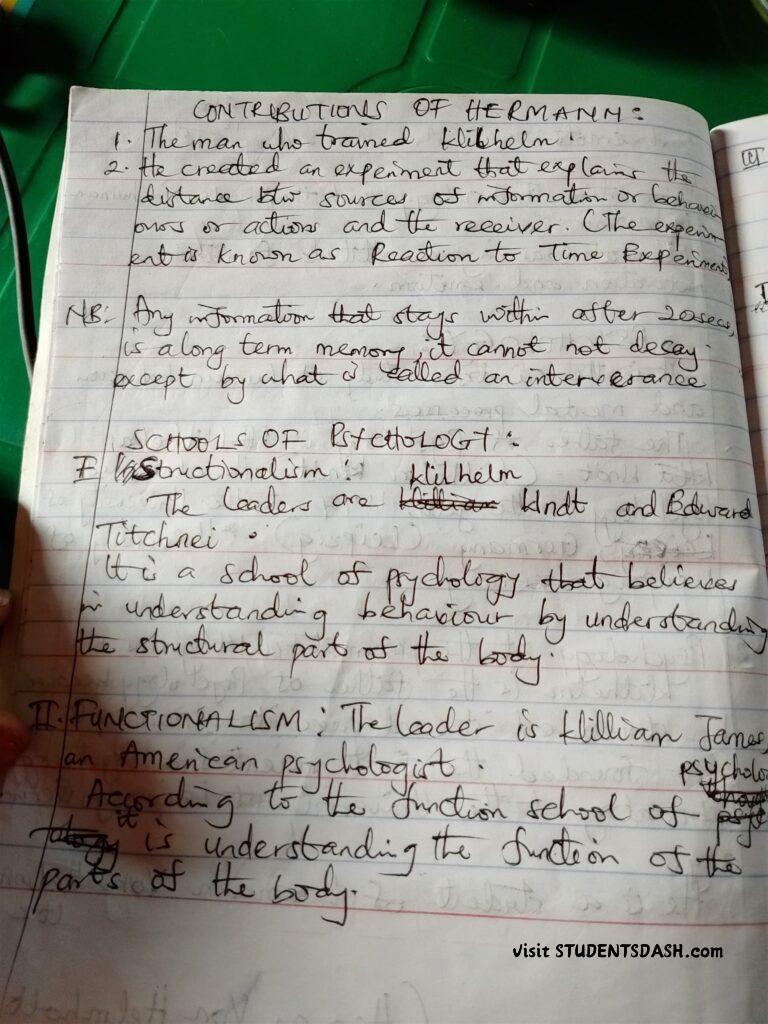 CONTRIBUTIONS OF HERMANN:
1. The man who trained Wilhelm.
2. He created an experiment that explains the
distance btw sources of information or behavi
ours or actions and the receiver. (The experim
ent is known as Reaction to Time Experiment
NB: Any information that stays within after 20secs,
is a long term memory, it cannot not decay
except by what is called an interverance
SCHOOLS OF PSYCHOLOGY:
I Structionalism: Wilhelm
The leaders are Wundt and Edward
Titchnei.
It is a school of psychology that believes
in understanding behaviour by understanding
the structural part of the body.
II. FUNCTIONALISM: The leader is William James,
an American psychologist. psycholo
According to the function school of
it is understanding the function of the
parts of the body.
Visit STUDENTSDASH.com